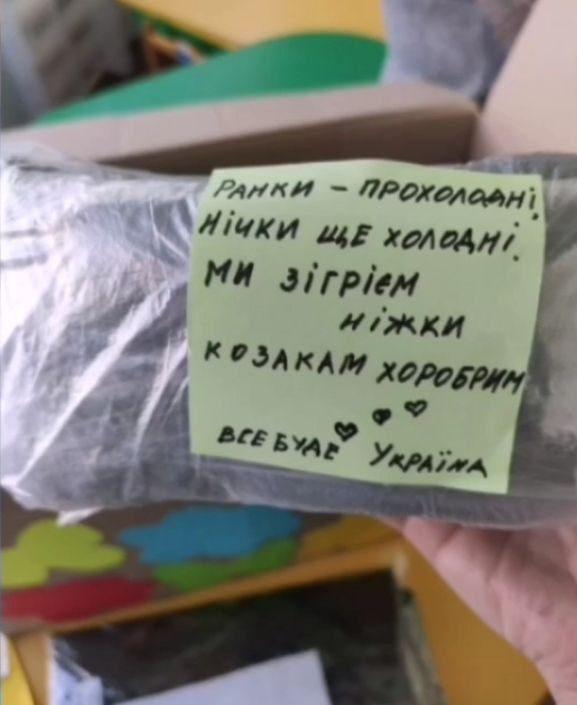 РАНКИ – ПРОХОЛОДНІ,
НІЧКИ ЩЕ ХОЛОДНІ.
МИ ЗІГРІЄМ
НІЖКИ
КОЗАКАМ ХОРОБРИМ
ВСЕ БУДЕ УКРАЇНА